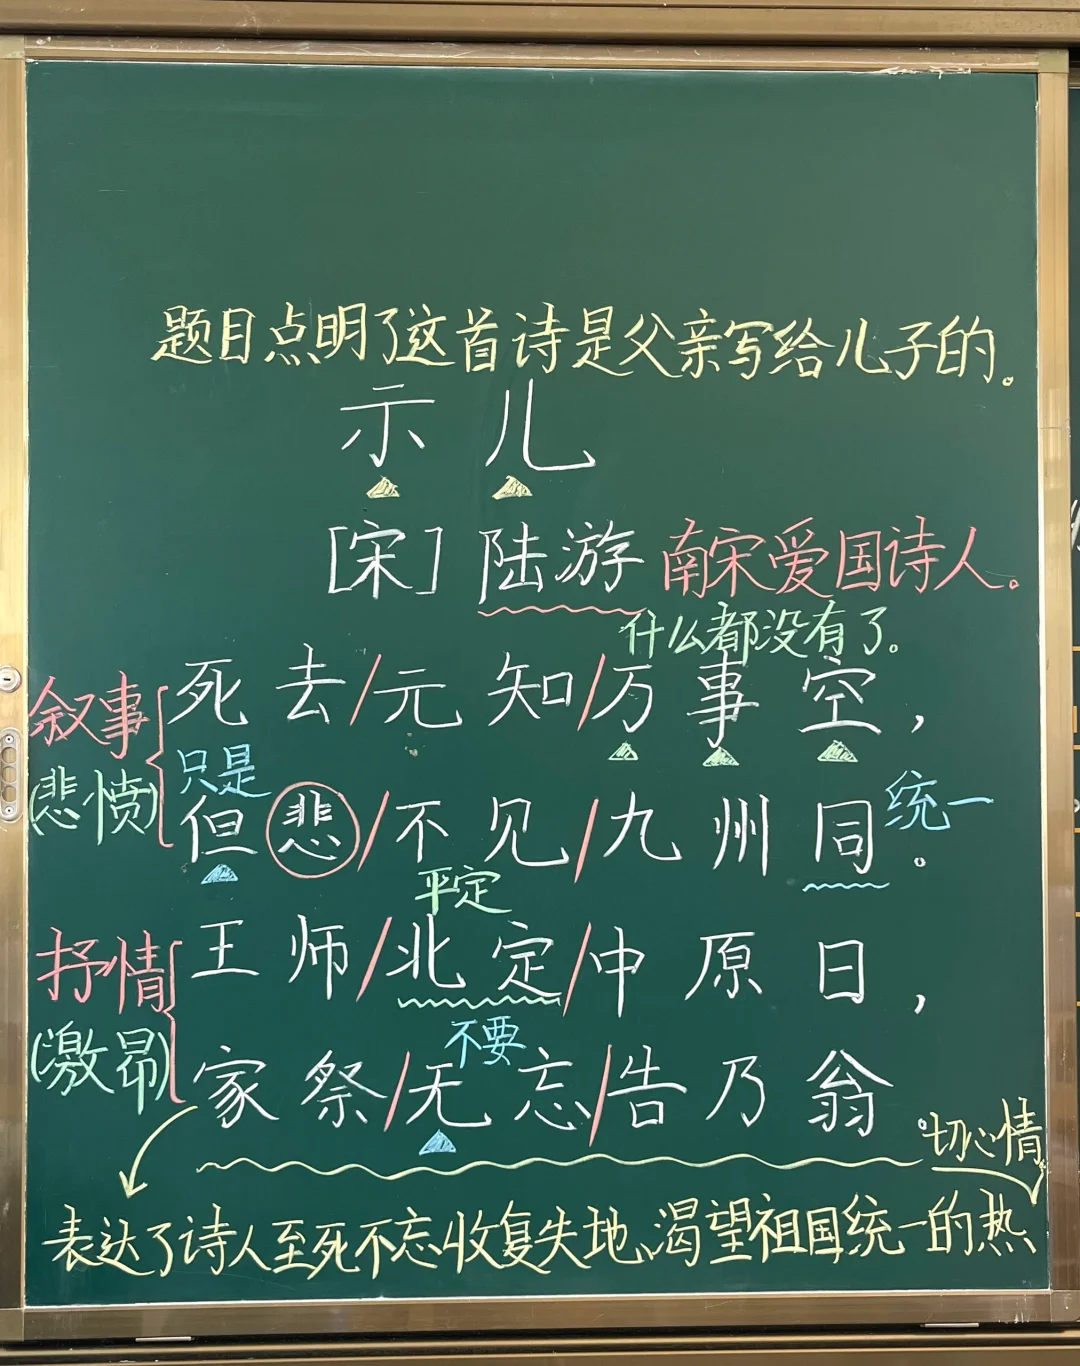 题目点明了这首诗是父亲写给儿子的。
示儿
[宋] 陆游 南宋爱国诗人。
什么都没有了。
叙事
(悲愤)
死去/元知/万事空，
只是
但悲/不见/九州同。
统一
平定
抒情
(激昂)
王师/北定/中原日，
不要
家祭/无忘/告乃翁。
切心情
表达了诗人至死不忘收复失地、渴望祖国统一的热